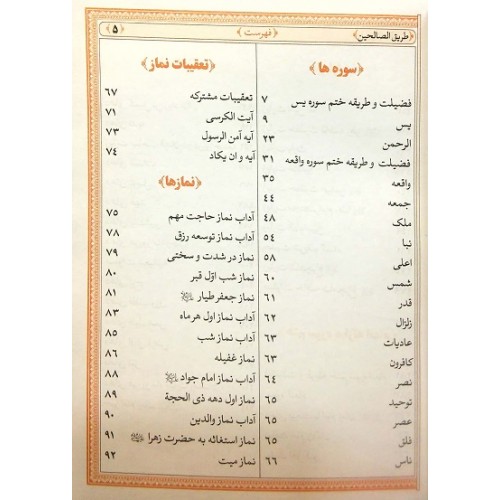 طریق الصالحین
﴿ فهرست ﴾
﴿۵﴾
﴿سوره ها﴾
فضیلت و طریقه ختم سوره یس ۷
یس ۹
الرحمن ۲۳
فضیلت و طریقه ختم سوره واقعه ۳۱
واقعه ۳۵
جمعه ۴۴
ملک ۴۸
نبا ۵۴
اعلی ۵۸
شمس ۶۰
قدر ۶۱
زلزال ۶۲
عادیات ۶۳
کافرون ۶۳
نصر ۶۴
توحید ۶۵
عصر ۶۵
فلق ۶۵
ناس ۶۶
﴿تعقیبات نماز﴾
تعقیبات مشترکه ۶۷
آیت الکرسی ۷۱
آیه آمن الرسول ۷۳
آیه و ان یکاد ۷۴
﴿نمازها﴾
آداب نماز حاجت مهم ۷۵
آداب نماز توسعه رزق ۷۸
نماز در شدت و سختی ۷۹
نماز شب اوّل قبر ۸۰
نماز جعفر طیار ۸۱
آداب نماز اول هر ماه ۸۳
آداب نماز شب ۸۵
نماز غفیله ۸۶
آداب نماز امام جواد ۸۸
نماز اول دهه ذی الحجة ۸۹
آداب نماز والدین ۹۰
نماز استغاثه به حضرت زهرا ۹۱
نماز میت ۹۲